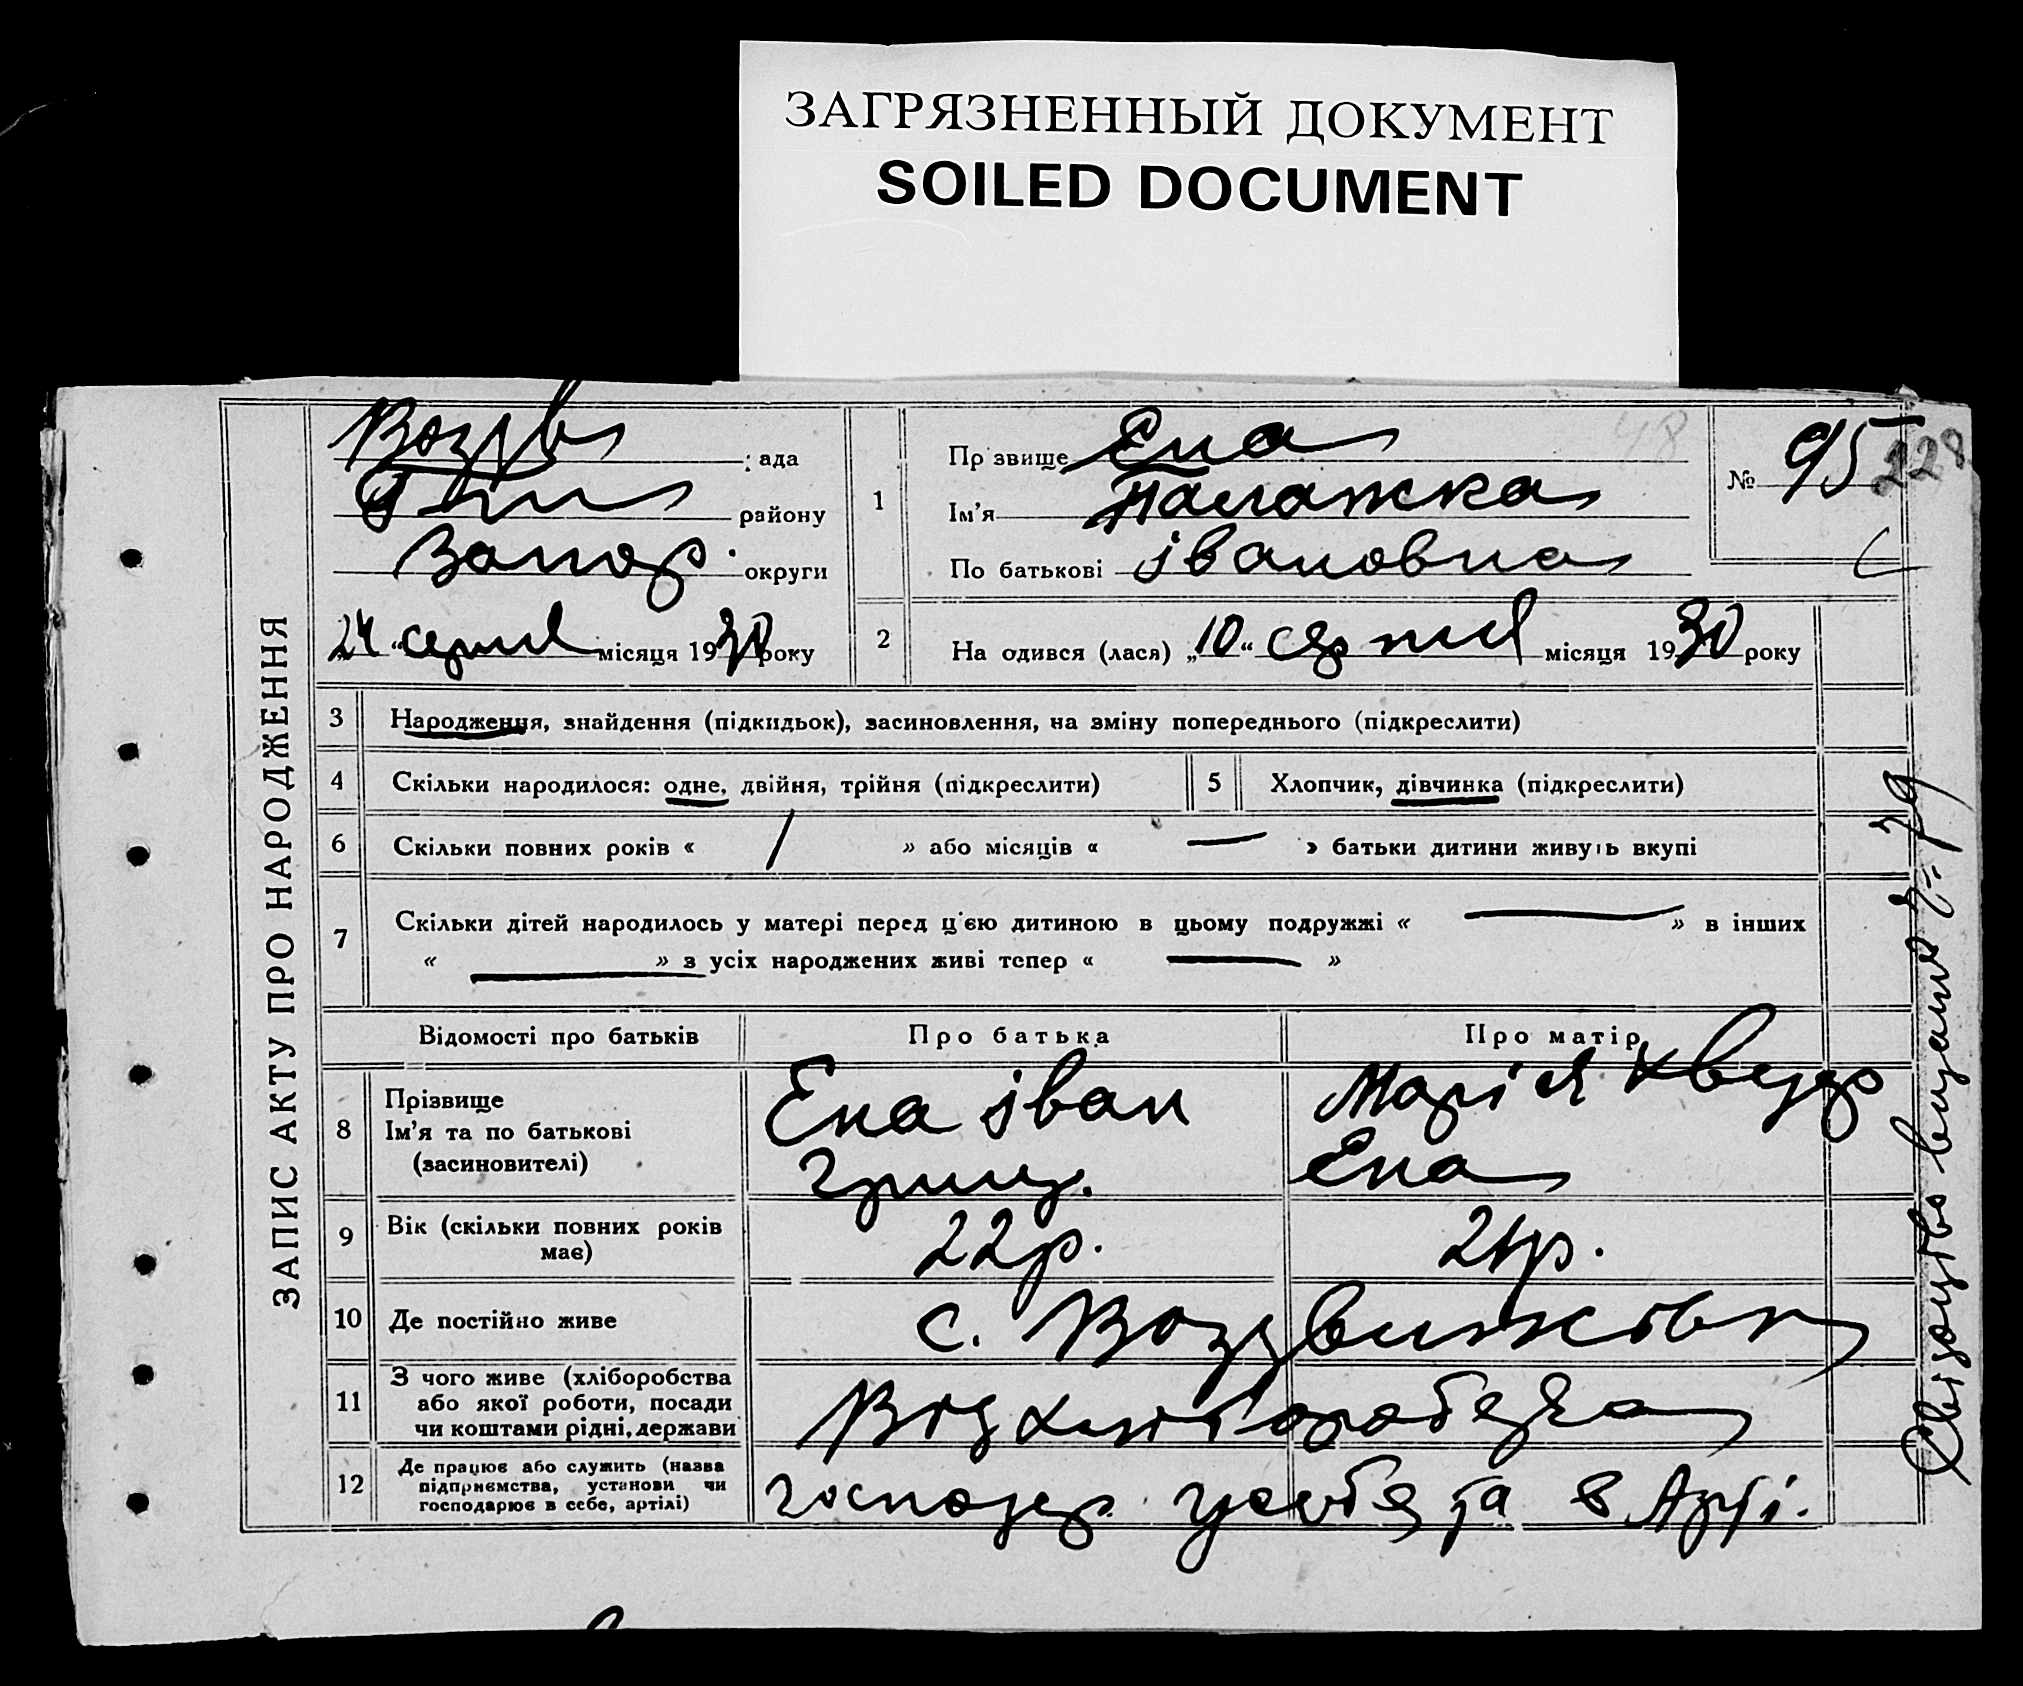 ЗАГРЯЗНЕННЫЙ ДОКУМЕНТ
SOILED DOCUMENT
ЗАПИС АКТУ ПРО НАРОДЖЕННЯ
Воздв ада
району
Запор. округи
24 “ серпня місяця 1930 року
1
Пр звище Ена
Ім’я Палажка
По батькові Івановна
48
№ 95
228
2 На одився (лася) „ 10 “ серпня місяця 1930 року
3 Народження, знайдення (підкидьок), засиновлення, на зміну попереднього (підкреслити)
4 Скільки народилося: одне, двійня, трійня (підкреслити)
5 Хлопчик, дівчинка (підкреслити)
6 Скільки повних років « 1 » або місяців « — » батьки дитини живуть вкупі
7 Скільки дітей народилось у матері перед ц'єю дитиною в цьому подружжі « — » в інших
« — » з усіх народжених живі тепер « — »
Відомості про батьків Про батька Про матір
8 Прізвище
Ім’я та по батькові
(засиновителі)
Ена Іван
Григ.
Марія
Ена
9 Вік (скільки повних років
має)
22 р. 21 р.
10 Де постійно живе с. Воздвижевка
11 З чого живе (хліборобства
або якої роботи, посади
чи коштами рідні, держави
Від хліборобства
12 Де працює або служить (назва
підприємства, установи чи
господарює в себе, артілі)
господар. у себе та в Арті.
Свідоцтво видано № 79